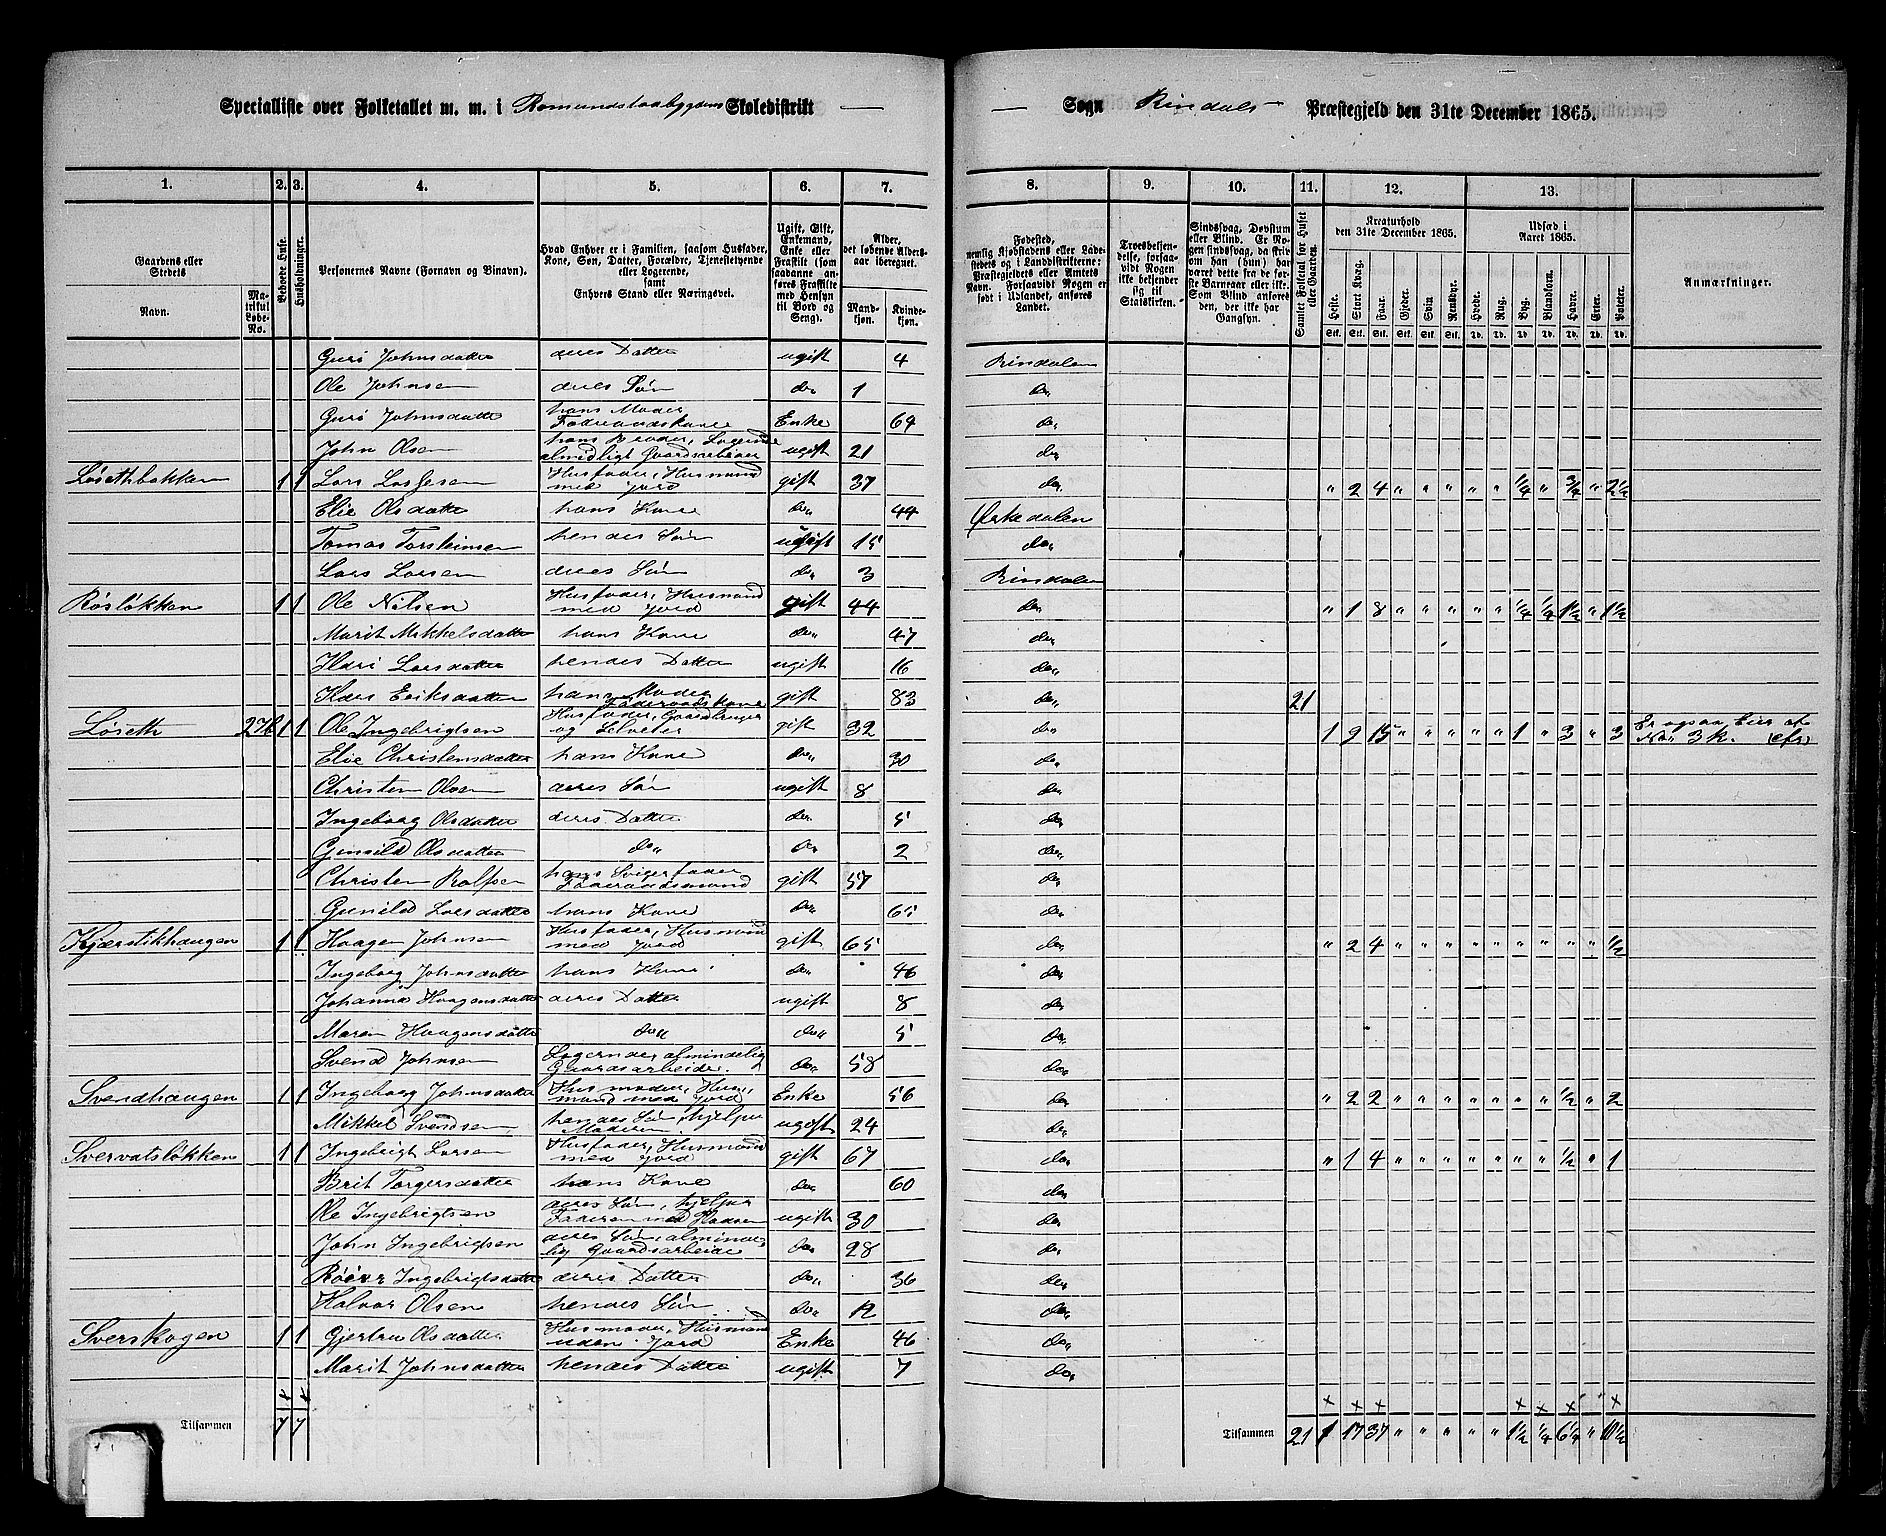 Specialliste over Folketallet m. m. i Romundstadbygdens Skoledistrikt — — Sogn Rindals Præstegjeld den 31te December 1865.
1. 2. 3. 4. 5. 6. 7. 8. 9. 10. 11. 12. 13.
Gaardens eller Stedets
Navn. Matrikul Løbe-No.
Beboede Huse.
Husholdninger.
Personernes Navne (Fornavn og Binavn).
Hvad Enhver er i Familien, saasom Husfader, Kone, Søn, Datter, Forældre, Tjenestetyende eller Logerende, samt Enhvers Stand eller Næringsvei.
Ugift, Gift, Enkemand, Enke eller Fraskilt (som saadanne anføres Fraskilte med Hensyn til Bord og Seng).
Alder, det løbende Aldersaar iberegnet.
Mandkjøn. Kvindekjøn.
Fødested, nemlig Kjøbstadens eller Ladestedets og i Landdistrikterne: Præstegjeldets eller Amtets Navn. Forsaavidt Nogen er født i Udlandet, anføres Landet.
Troesbekjendelse, forsaavidt Nogen ikke bekjender sig til Statskirken.
Sindssvag, Døvstum eller Blind. Er Nogen sindssvag, da skrives, om han (hun) har været dette fra de første Barneaar eller ikke. Som Blind anføres den, der ikke har Gangsyn.
Samlet Folketal for Huset eller Gaarden.
Kreaturhold den 31te December 1865.
Heste. Stort Kvæg. Faar. Gjeder. Svin Rensdyr.
Udsæd i Aaret 1865.
Hvede. Rug. Byg. Blandkorn. Havre. Erter. Poteter.
Anmærkninger.
Guro Johnsdatter deres Datter ugift 4 Rindalen
Ole Johnsen deres Søn do 1 do
Guro Johnsdatter hans Moder Føderaadskone Enke 64 do
John Olsen hans Broder, Logerende almindligt Gaardsarbeier ugift 21 do
Løsethbakken 1 1 Lars Larsen Husfader, Husmand med Jord gift 37 do " 2 4 " " " " " ¼ " ¾ " 2½
Elie Olsdatter hans Kone do 44 Ørkedalen
Tomas Torsteinsen hendes Søn ugift 15 do
Lars Larsen deres Søn do 3 Rindalen
Røsløkken 1 1 Ole Nilsen Husfader, Husmand med Jord gift 44 do " 1 8 " " " " " ¼ ¼ 1½ " 1½
Marit Mikkelsdatter hans Kone do 47 do
Ildri Larsdatter hendes Datter ugift 16 do
Eriksdatter hans Moder Føderaadskone gift 83 do 21
Løseth 27b 1 1 Ole Ingebrigtsen Husfader, Gaardbruger og Selveier gift 32 do 1 9 15 " " " " " 1 " 3 " 3 Er ogsaa Eier af No 3 k.
Elie Christensdatter hans Kone do 30 do
Christen Olsen deres Søn ugift 8 do
Ingeborg Olsdatter deres Datter do 5 do
Gunild Olsdatter do do 2 do
Christen Rolfsen hans Svigerfader Føderaadsmand gift 57 do
Gunild Larsdatter hans Kone do 65 do
Kjærstikhaugen 1 1 Haagen Johnsen Husfader, Husmand med Jord gift 65 do " 2 4 " " " " " " " " " ½
Ingeborg Johnsdatter hans Kone do 46 do
Johanna Haagensdatter deres Datter ugift 8 do
Maren Haagensdatter do do 5 do
Svend Johnsen Logerende, almindelig Gaardsarbeide. do 58 do
Svendhaugen 1 1 Ingeborg Johnsdatter Husmoder, Husmand med Jord Enke 56 do " 2 2 " " " " " " " ½ " 2
Mikkel Svendsen hendes Søn, hjelper Moderen ugift 24 do
Svervatsløkken 1 1 Ingebrigt Larsen Husfader, Husmand med Jord gift 67 do " 1 4 " " " " " " " ½ " 1
Brit Torgersdatter hans Kone do 60 do
Ole Ingebrigtsen deres Søn, hjelper Faderen med ugift 30 do
John Ingebrigtsen deres Søn, almindelig Gaardsarbeide do 28 do
Ingebrigtsdatter deres Datter do 36 do
Halvor Olsen hendes Søn do 12 do
Sverskogen 1 1 Gjertru Olsdatter Husmoder, Husmand uden Jord Enke 46 do
Marit Johnsdatter hendes Datter ugift 7 do
Tilsammen 7 7 Tilsammen 21 1 17 37 " " " " " 1½ ¼ 6¼ " 10½